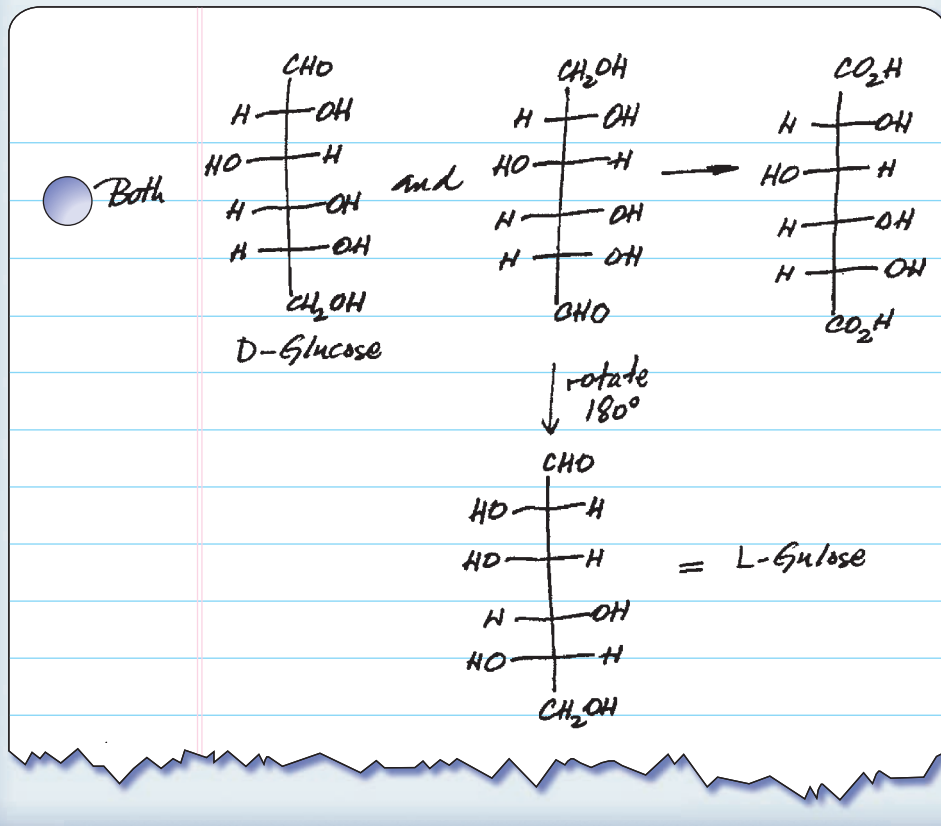 CHO
H OH
HO H
H OH
H OH
CH₂OH
D-Glucose
Both
and
CH₂OH
H OH
HO H
H OH
H OH
CHO
CO₂H
H OH
HO H
H OH
H OH
CO₂H
rotate
180°
CHO
HO H
HO H
H OH
HO H
CH₂OH
= L-Gulose